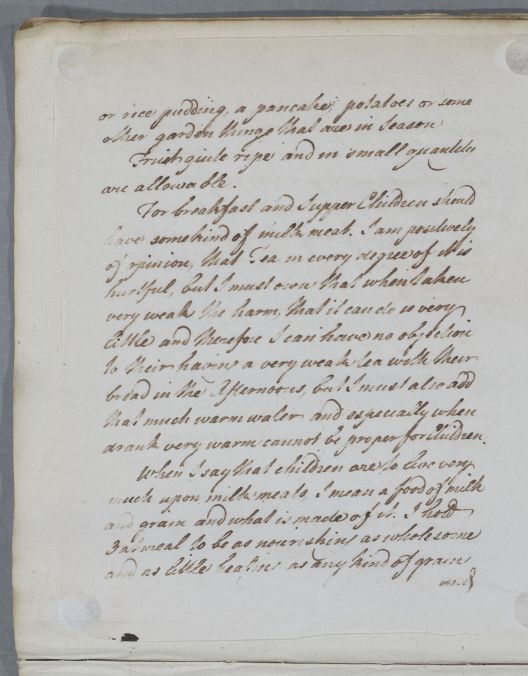 or rice pudding, a pancake, potatoes or some
other garden things that are in Season
Fruit quite ripe and in small quantity
are allowable.
For breakfast and Supper Children should
have some kind of milk meat. I am positively
of opinion, that Tea in every degree of it is
hurtful, but I must own that when taken
very weak the harm, that it can do is very
little and therefore I can have no objection
to their having a very weak tea with their
bread in the Afternoons, but I must also add
that much warm water and especially when
drank very warm cannot be proper for Children.
When I say that children are to live very
much upon milk meats, I mean a food of milk
and grain and what is made of it. I hold
Oatmeal to be as nourishing as wholesome
and as little heating as any kind of grain
and